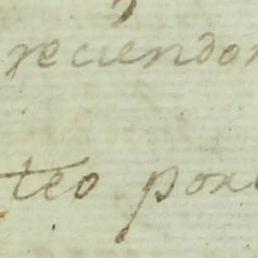 reciendon
teo por